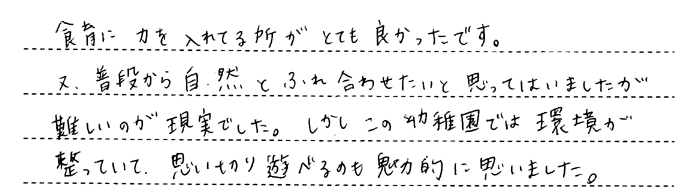 食育に力を入れてる所がとても良かったです。
又、普段から自然とふれ合わせたいと思ってはいましたが
難しいのが現実でした。しかしこの幼稚園では環境が
整っていて、思い切り遊べるのも魅力的に思いました。